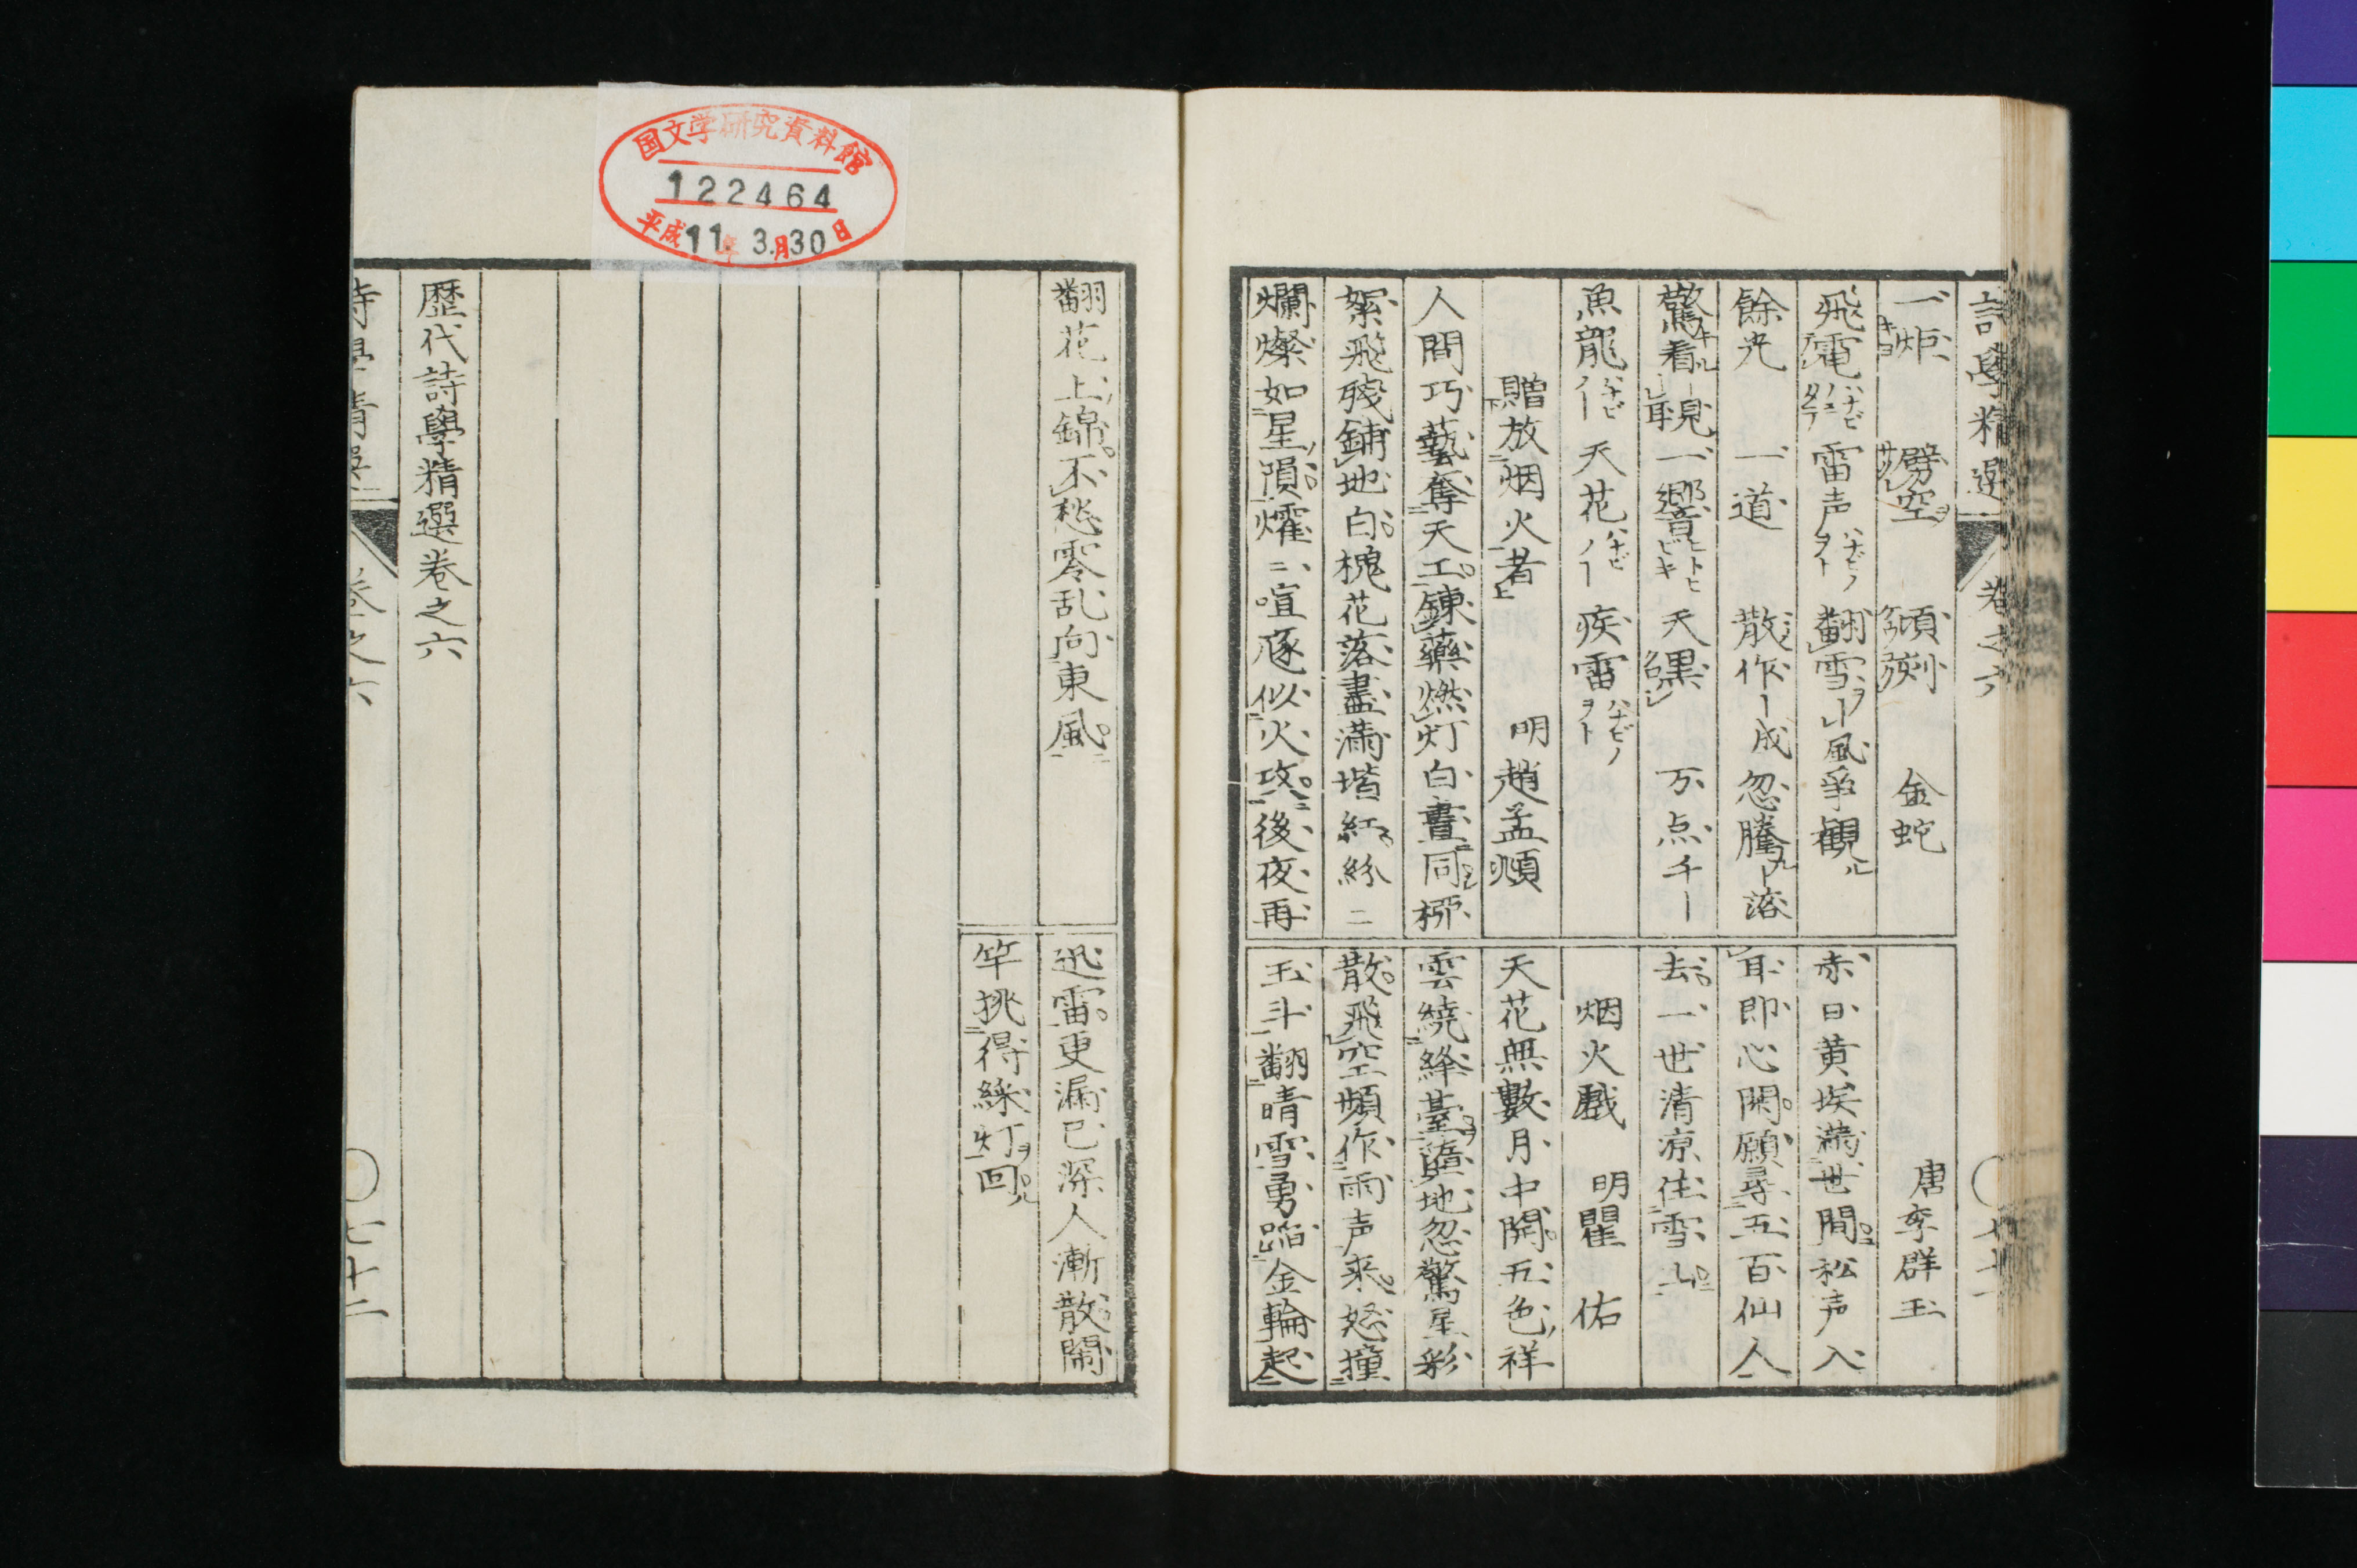 詩學精選 卷之六
一炬 劈空 傾剡 金蛇
飛電 雷声 翻雪 山風 爭觀
餘光 一道 散作 成 忽騰 溶
驚看 一響 天黒 万点 千
魚龍 天花 疾雷
贈放烟火者 明 趙孟頫
人間巧藝奪天工錬藥燃灯白晝同栁
絮飛殘鋪地白槐花落盡滿堦紅紛二
爛燦如星隕㸌二喧豗似火攻後夜再
唐李群玉
赤日黄埃滿世間松声入
耳即心閑願尋五百仙人
去一世清凉住雪山
烟火戲 明瞿佑
天花無數月中開五色祥
雲繞絳臺墮地忽驚星彩
散飛空頻作雨声来怒撞
玉斗翻晴雪勇蹈金輪起
翻花上錦不愁零乱向東風
迅雷更漏已深人漸散閙
竿挑得綵灯回
歴代詩學精選卷之六
詩學精選 卷之六 〇七十二
国文学研究資料館
122464
平成11年3月30日